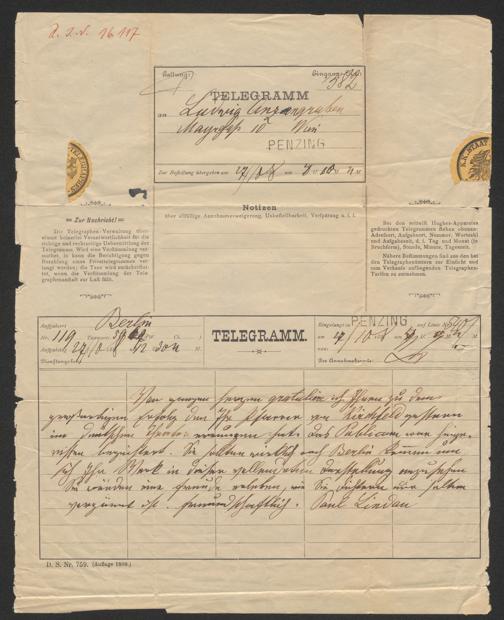 I. I. N. 16 117
Gattung:
Eingangs-Nr.
382
TELEGRAMM
an Ludwig Anzengruber
Wien
PENZING
Zur Bestellung übergeben am
Notizen
über allfällige Annahmsverweigerung, Unbestellbarkeit, Verspätung u. s. f.
Zur Nachricht!
Die Telegraphen-Verwaltung übernimmt
keinerlei Verantwortlichkeit für die
richtige und rechtzeitige Uebermittlung der
Telegramme. Wird eine Verstümmlung vermuthet,
so kann die Berichtigung gegen
Bezahlung eines Privattelegrammes verlangt
werden; die Taxe wird zurückerstattet,
wenn die Verstümmlung der Telegraphenanstalt
zur Last fällt.
Bei den mittelst Hughes-Apparates
gedruckten Telegrammen stehen obenan:
Adreßort, Aufgabsort, Nummer, Wortzahl
und Aufgabszeit, d. i. Tag und Monat (in
Bruchform), Stunde, Minute, Tageszeit.
Nähere Bestimmungen sind aus den bei
den Telegraphenämtern zur Einsicht und
zum Verkaufe aufliegenden Telegraphen-
Tarifen zu entnehmen.
Aufgabsort Berlin
Nr. 119
Taxworte
Aufgabszeit
Dienstangaben
TELEGRAMM.
Eingelangt in PENZING auf Linie Nr.
am
von
Der Annahmebeamte:
Von ganzem Herzen gratulire ich Ihnen zu dem
großartigen Erfolg den Ihr Pfarrer von Kirchfeld gestern
im Deutschen Theater errungen hat. das Publicum war hingerissen
begeistert. Sie sollten wirklich nach Berlin kommen um
sich Ihr Werk in dieser vollendeten Vorstellung anzusehen
Sie würden eine Freude erleben, wie Sie Dichtern nur selten
vergönnt ist. freundschaftlich. Paul Lindau
D. S. Nr. 759. (Auflage 1888.)